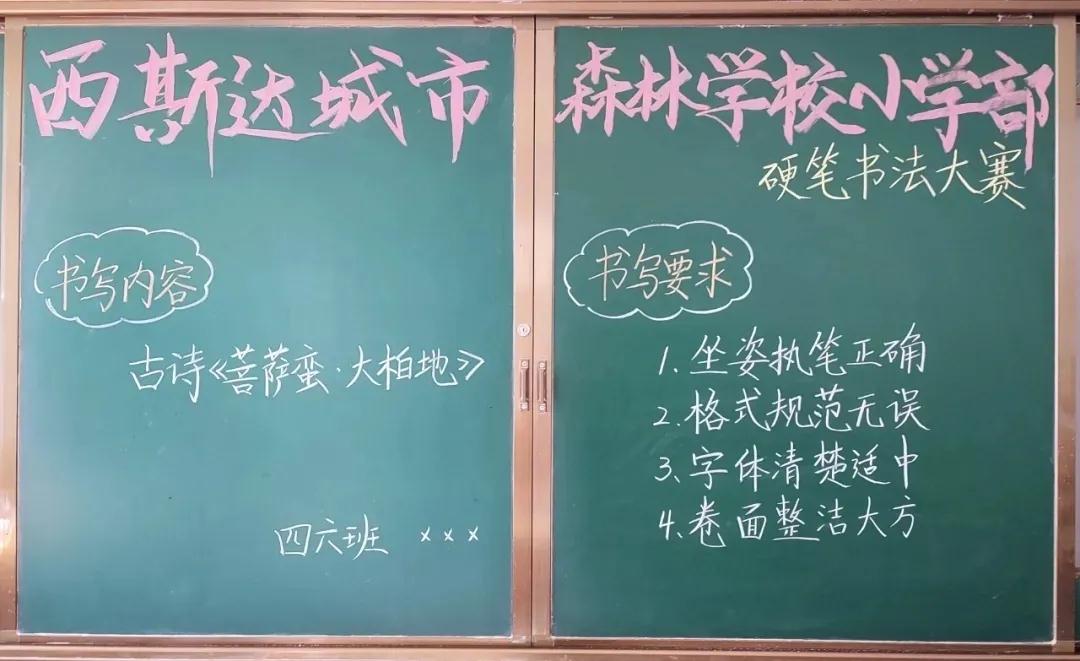 西斯达城市
森林学校小学部
硬笔书法大赛
书写内容
古诗《菩萨蛮·大柏地》
四六班 ×××
书写要求
1.坐姿执笔正确
2.格式规范无误
3.字体清楚适中
4.卷面整洁大方